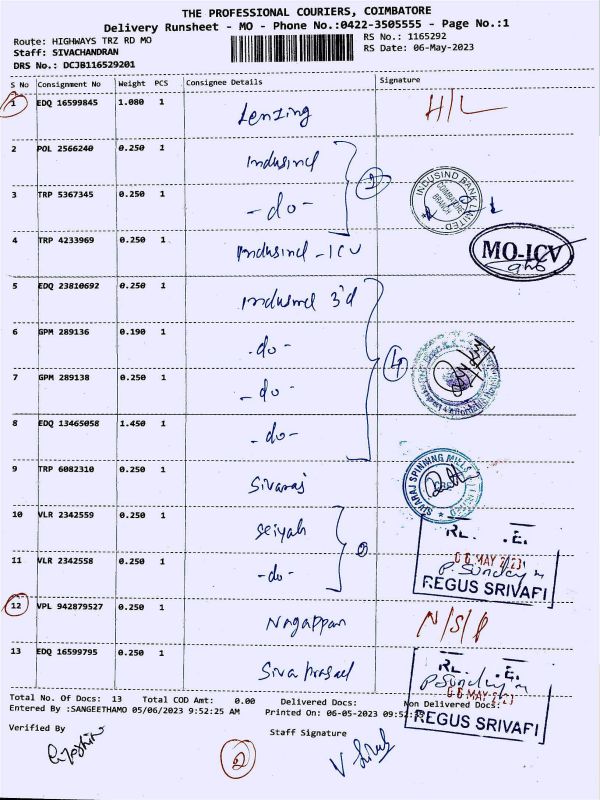 THE PROFESSIONAL COURIERS, COIMBATORE
Delivery Runsheet - MO - Phone No.:0422-3505555 - Page No.:1
Route: HIGHWAYS TRZ RD MO RS No.: 1165292
Staff: SIVACHANDRAN RS Date: 06-May-2023
DRS No.: DCJB116529201
S No Consignment No Weight PCS Consignee Details Signature
1 EDQ 16599845 1.080 1 Lenzing H/L
2 POL 2566240 0.250 1 Indusind
3 TRP 5367345 0.250 1 -do- 2 INDUSIND BANK LIMITED COIMBATORE BRANCH
4 TRP 4233969 0.250 1 Indusind - ICU MO-ICV
5 EDQ 23810692 0.250 1 Indusind 3'd
6 GPM 289136 0.190 1 -do-
7 GPM 289138 0.250 1 -do- 4
8 EDQ 13465058 1.450 1 -do-
9 TRP 6082310 0.250 1 Sivaraj SIVARAJ SPINNING MILLS
10 VLR 2342559 0.250 1 Seiyah
11 VLR 2342558 0.250 1 -do- 2 06 MAY 2023
P. Sunday
REGUS SRIVARI
12 VPL 942879527 0.250 1 Nagappan N/S/P
13 EDQ 16599795 0.250 1 Siva Prasad P. Sunday
06 MAY 2023
Total No. Of Docs: 13 Total COD Amt: 0.00 Delivered Docs: Non Delivered Docs:
Entered By :SANGEETHAMO 05/06/2023 9:52:25 AM Printed On: 06-05-2023 09:52
REGUS SRIVARI
Verified By Staff Signature
2